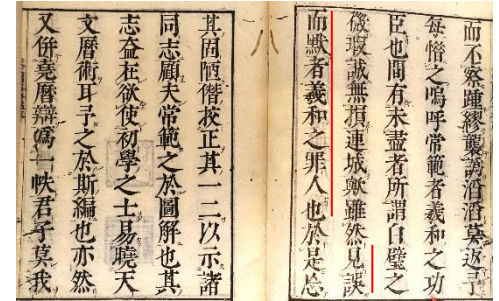 而不察踵繆襲譌滔滔莫返予
每惜之嗚呼常範者羲和之功
臣也間有未盡者所謂白璧之
微瑕誠無損連城歟雖然見誤
而默者羲和之罪人也於是忘
其固陋僭校正其一二以示諸
同志顧夫常範之於圖解也其
志葢在欲使初學之士易曉天
文曆術耳予之於斯編也亦然
又併堯曆辯爲一帙君子莫我